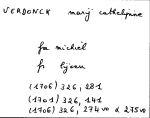 VERDONCK marij cathelijne
fa michiel
fs lijsen
(1706) 326, 281
(1701) 326, 141
(1706) 326, 274 vo à 275 vo